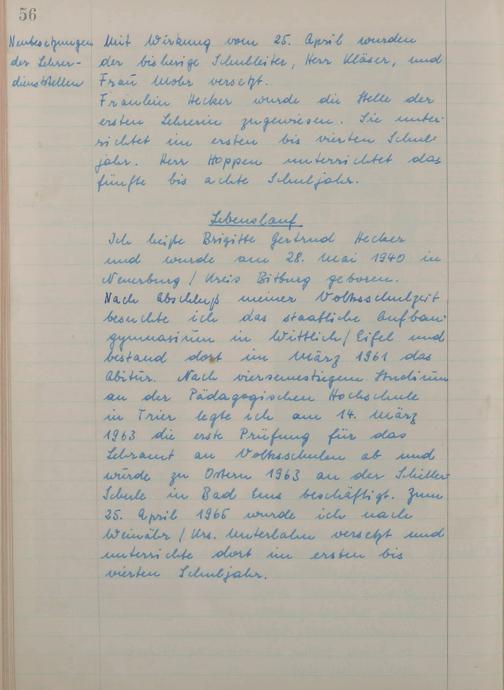 56
Neubesetzungen
der Lehrer-
dienststellen
Mit Wirkung vom 25. April wurden
der bisherige Schulleiter, Herr Kläser, und
Frau Mohr versetzt.
Fräulein Hecker wurde die Stelle der
ersten Lehrerin zugewiesen. Sie unter-
richtet im ersten bis vierten Schul-
jahr. Herr Hoppen unterrichtet das
fünfte bis achte Schuljahr.
Lebenslauf
Ich heiße Brigitte Gertrud Hecker
und wurde am 28. Mai 1940 in
Neuerburg / Kreis Bitburg geboren.
Nach Abschluß meiner Volksschulzeit
besuchte ich das staatliche Aufbau-
gymnasium in Wittlich / Eifel und
bestand dort im März 1961 das
Abitur. Nach viersemestrigem Studium
an der Pädagogischen Hochschule
in Trier legte ich am 14. März
1963 die erste Prüfung für das
Lehramt an Volksschulen ab und
wurde zu Ostern 1963 an der Schiller-
Schule in Bad Ems beschäftigt. Zum
25. April 1966 wurde ich nach
Weinähr / Krs. Unterlahn versetzt und
unterrichte dort im ersten bis
vierten Schuljahr.